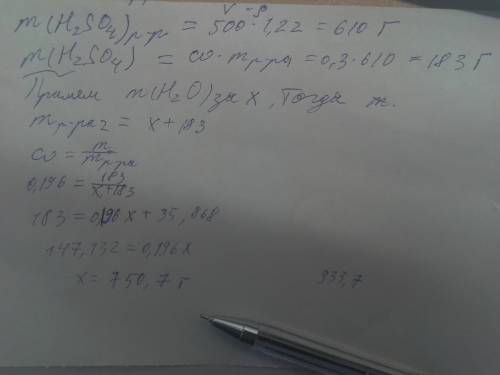 V · ρ
m(H₂SO₄)р-р = 500 · 1,22 = 610 г
m(H₂SO₄) = ω · mр-ра = 0,3 · 610 = 183 г
Примем m(H₂O) за x, Тогда
mр-ра2 = x + 183
ω = m/mр-ра
0,196 = 183/x+183
183 = 0,196x + 35,868
147,132 = 0,196x
x = 750,7 г
933,7